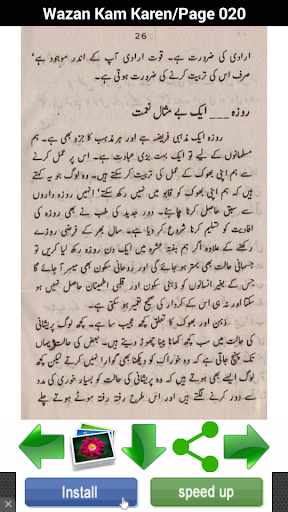 Wazan Kam Karen/Page 020
26
ارادی کی ضرورت ہے۔ قوت ارادی آپ کے اندر موجود ہے،
صرف اس کی تربیت کرنے کی ضرورت ہوتی ہے۔
روزہ ___ ایک بے مثال نعمت
روزہ ایک مذہبی فریضہ ہے اور ہر مذہب کا جزو بھی ہے۔ ہم
مسلمانوں کے لیے تو ایک بہت بڑی عبادت ہے۔ اس پر عمل کرنے
سے ہم اپنی بھوک کے عمل کی تربیت کر سکتے ہیں۔ وہ لوگ جو یہ کہتے
ہیں کہ ہم اپنی بھوک کو قابو میں نہیں رکھ سکتے، انہیں روزہ داروں
سے سبق حاصل کرنا چاہئے۔ دور جدید کی طب نے بھی روزہ کی
افادیت کو تسلیم کر لیا ہے۔ سال بھر کے فرضی روزے
رکھنے کے علاوہ اگر ہم ہفتہ عشرہ میں ایک دن روزہ رکھ لیا کریں تو
جسمانی حالت بھی بہتر ہو جائے گی اور روحانی سکون بھی میسر آ جائے گا
کیونکہ جب تک انسان کو ذہنی سکون اور قلبی اطمینان حاصل نہیں ہو
سکتا اور نہ ہی اس کے کردار کی صحیح تعمیر ہو سکتی ہے۔
ذہن اور بھوک کا تعلق کچھ عجیب سا ہے۔ کچھ لوگ پریشانی
کی حالت میں سب کچھ کھانا پینا چھوڑ دیتے ہیں۔ بعض کی حالت یہاں
تک پہنچ جاتی ہے کہ وہ خوراک کو دیکھنا بھی گوارا نہیں کرتے لیکن کچھ
لوگ ایسے بھی ہوتے ہیں کہ وہ پریشانی کی حالت کو بسیار خوری کی مدد
سے دور کرنے لگتے ہیں اور اس طرح رفتہ رفتہ موٹے ہوتے چلے
Install
speed up